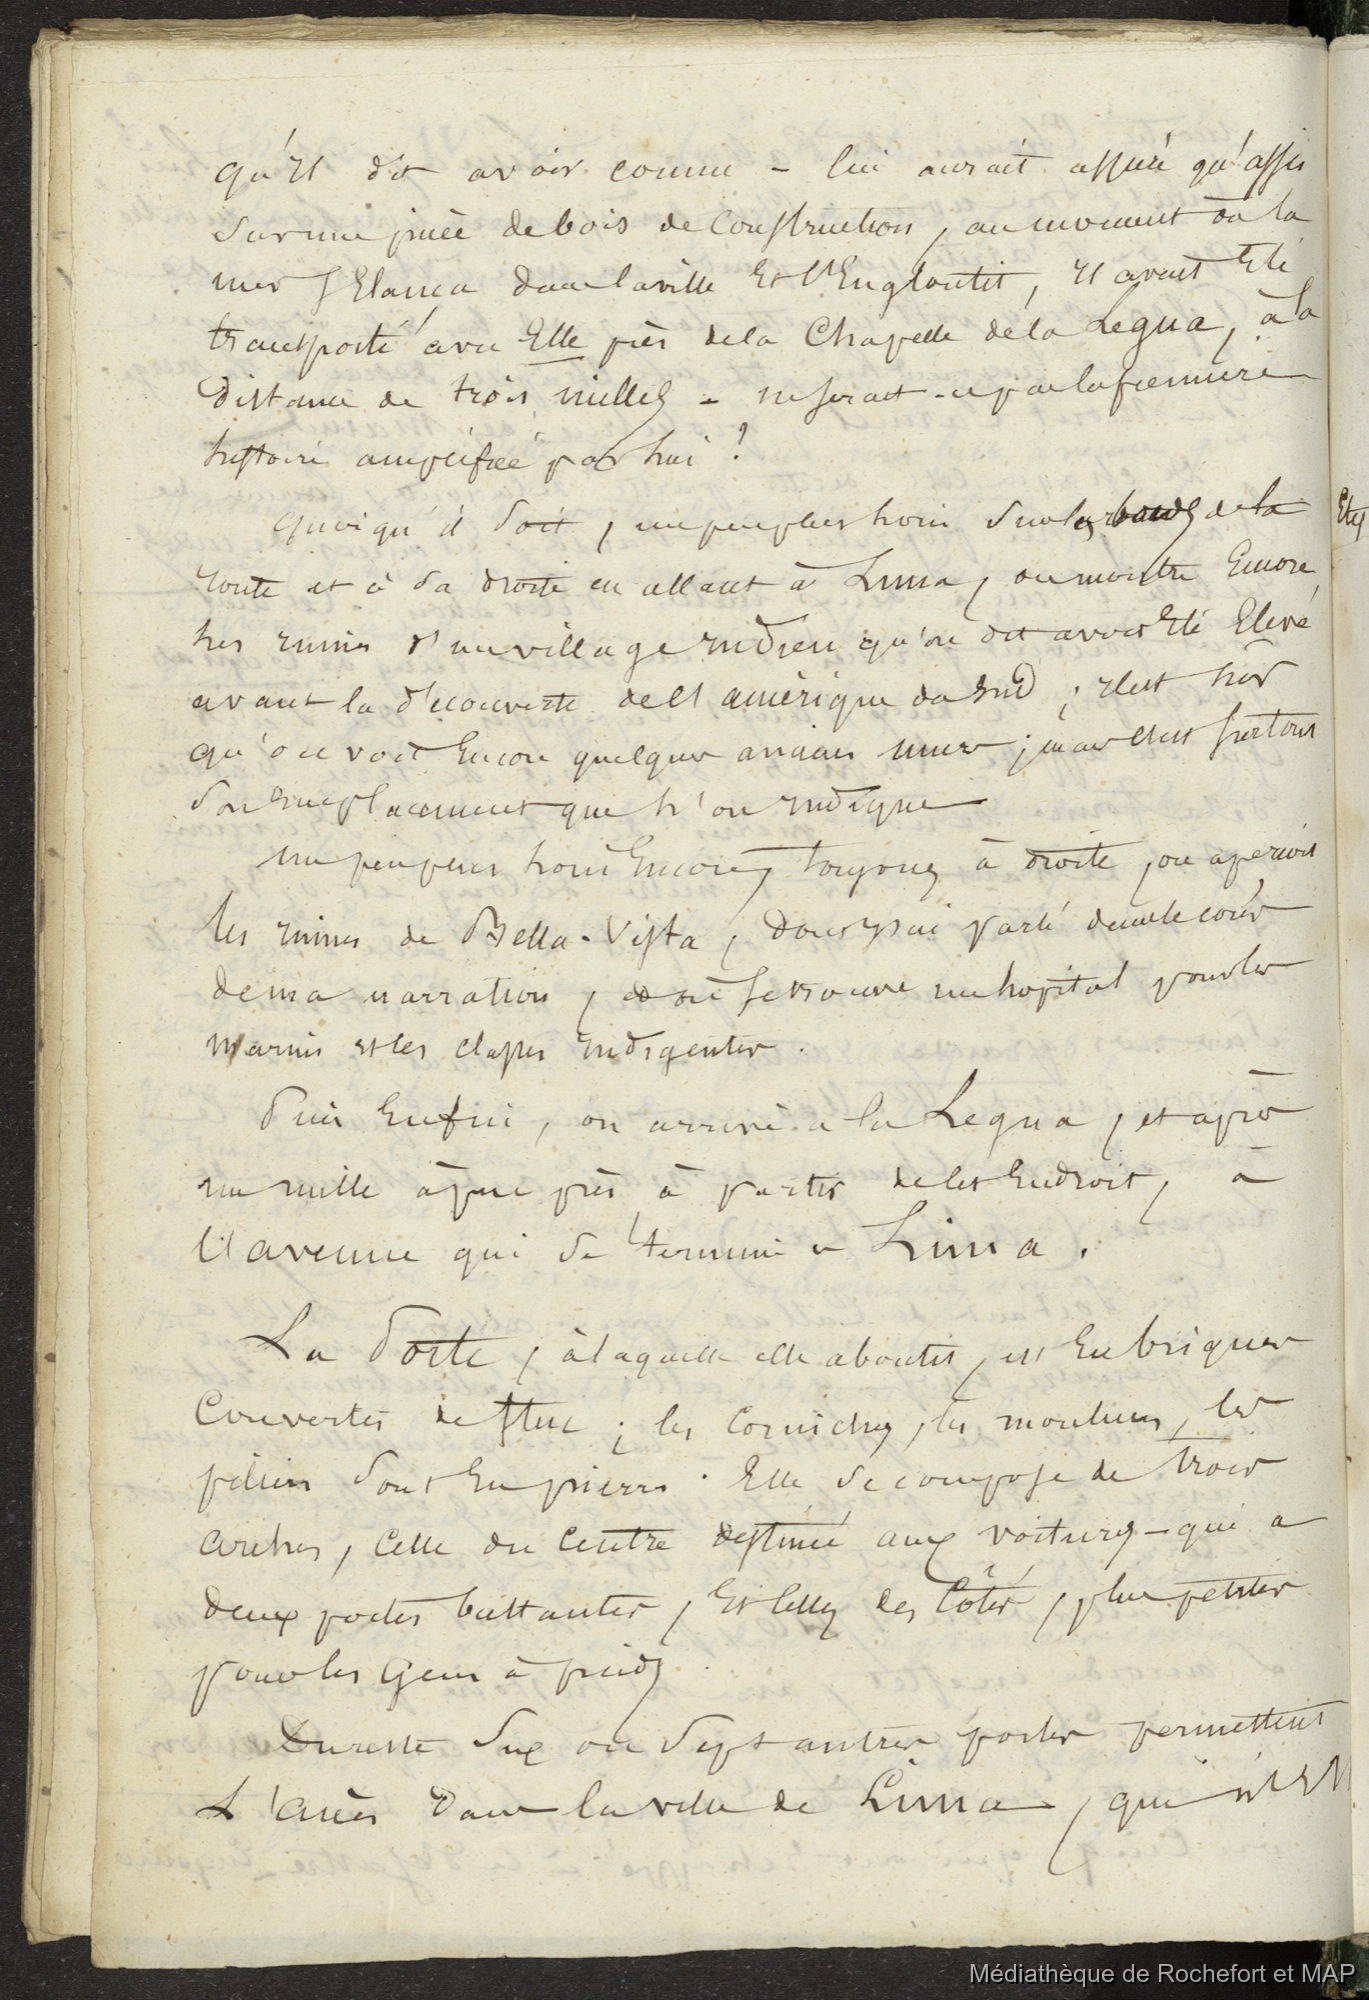 qu'il dit avoir connu - lui aurait assuré qu'assis
sur une pièce de bois de construction, au moment où la
mer s'Elança dans la ville Et l'Engloutit, il avait Eté
transporté avec Elle près de la Chapelle de la Legua, à la
distance de trois milles - ne serait-ce pas la première
histoire amplifiée par lui ?
quoiqu'il soit, un peu plus loin sur les bords de la
route et à sa droite en allant à Lima, on montre Encore
les ruines d'un village indien qu'on dit avoir Eté Elevé
avant la découverte de l'amérique du sud ; il est
qu'on voit Encore quelques anciens murs ; mais c'est surtout
son Emplacement que l'on indique
un peu plus loin Encore, toujours à droite, on aperçoit
les ruines de Bella-Vista, dont j'ai parlé dans le cours
de ma narration, et où se trouve un hopital pour les
marins et les classes indigentes.
Puis Enfin, on arrive à la Legua, et après
un mille à peu près, à partir de cet Endroit, à
l'avenue qui se termine à Lima.
La Porte, à laquelle elle aboutit, est En briques
Couvertes de stuc ; les Corniches, les moulures, les
piliers sont En pierres. Elle se compose de trois
arches, Celle du Centre destinée aux voitures - qui a
deux portes battantes, Et Celles des Côtés, plus petites
pour les Gens à pieds.
Du reste Six ou Sept autres portes permettent
L'accès dans la ville de Lima, qui n'est
Médiathèque de Rochefort et MAP